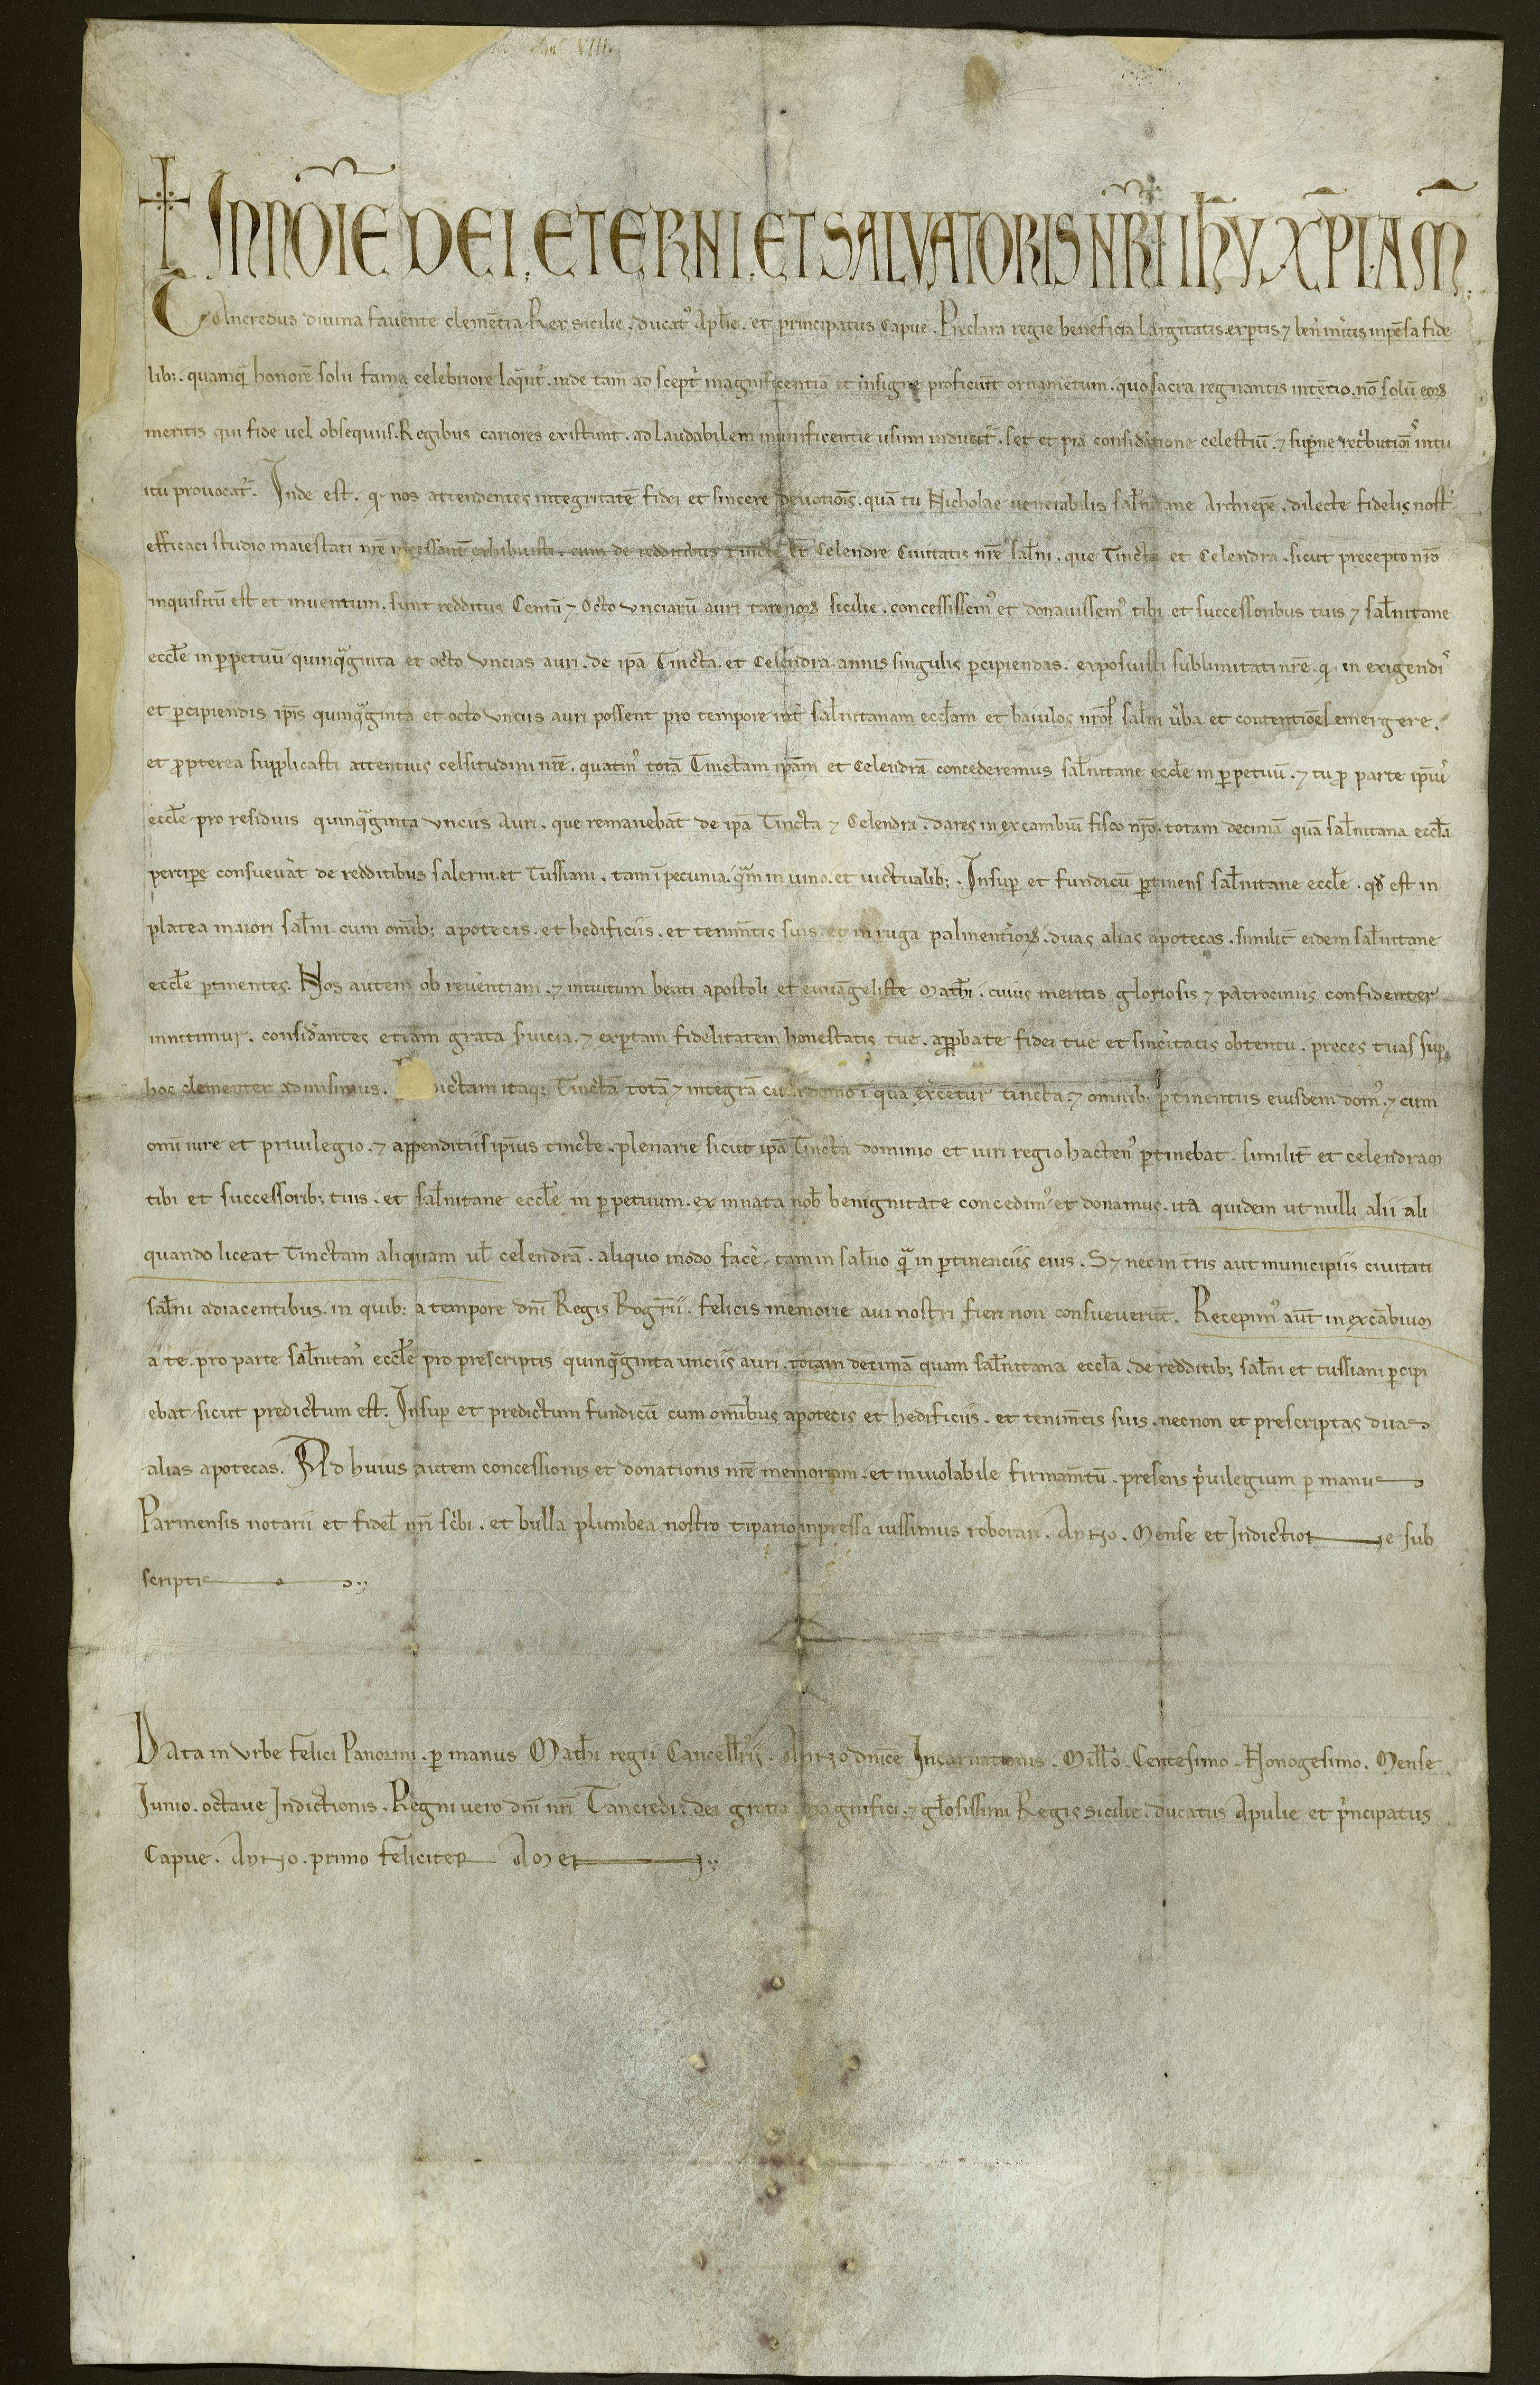 VIII.
IN NOĪE DEI ETERNI ET SALVATORIS NR̄I IH̄V XP̄I AM̄
Tancredus diuina fauente clemētia Rex sicilie ducat᾽ Apl̄ie et principatus Capue. Preclara regie beneficia largitatis exptis ⁊ bn̄ mītis inpēsa fide
lib; quamq̄ honorē solii fama celebriore loqnt᾽. inde tam̄ ad scept᾽ magnificentiā et insigne proficiūt ornamētum. quo sacra regnantis intētio. nō solū eoꝝ
meritis qui fide uel obsequiis Regibus cariores existunt. ad laudabilem munificentie usum inducit᾽. set et pia considatione celestiū ⁊ supne ret᾽butiōis intu
itu prouocat᾽. Inde est. q nos attendentes integritatē fidei et sincere deuotiōis. quā tu Nicholae uenerabilis sal̄nitane Archiepē. dilecte fidelis nost᾽
efficaci studio maiestati nr̄e incessant᾽ exhibuisti. cum de redditibus tincte et Celendre Ciuitatis nr̄e sal̄ni. que Tincta et Celendra. sicut precepto nr̄o
inquisitū est et inuentum. sunt redditus Centū ⁊ Octo vnciarū auri tarenoꝝ sicilie. concessissem᾽ et donauissem᾽ tibi et successoribus tuis ⁊ sal̄nitane
eccl̄e in ppetuū quinqginta et octo vncias auri. de ip̄a Tincta. et Celendra annis singulis pcipiendas. exposuisti sublimitati nr̄e. q in exigendis
et pcipiendis ip̄is quinqginta et octo vnciis auri possent pro tempore int᾽ sal̄nitanam eccl̄am et baiulos nr̄os sal̄ni ūba et contentiōes emergere.
et ppterea supplicasti attentius celsitudini nr̄e. quatin᾽ totā Tinctam ip̄am et Celendrā concederemus sal̄nitane eccl̄e in ppetuū. ⁊ tu p parte ip̄ius
eccl̄e pro residuis quinqginta vnciis Auri. que remanebāt de ip̄a Tincta ⁊ Celendra. dares in excambiū fisco nr̄o. totam decimā quā sal̄nitana eccl̄a
percipe consueuat de redditibus salerni et Tussiani. tam ī pecunia. qm in uino. et uictualib;. Insup et fundicū ptinens sal̄nitane eccl̄e. qd est in
platea maiori sal̄ni cum omīb; apotecis. et hedificiis. et tenim̄tis suis. et in ruga palmentarioꝝ. duas alias apotecas. similit᾽ eidem sal̄nitane
eccl̄e ptinentes. Nos autem ob reuentiam. ⁊ intuitum beati apostoli et euuāgeliste Math̄i. cuius meritis gloriosis ⁊ patrociniis confidenter
innitimur. considantes etiam grata s̄uicia. ⁊ exptam fidelitatem honestatis tue. appbate fidei tue et sincitatis obtentu. preces tuas sup
hoc clementer admisimus. ictam itaq; Tinctā totā ⁊ integrā cū domo ī qua ex᾽cetur tincta. ⁊ omnib; ptinentiis eiusdem dom᾽. ⁊ cum
omī iure et priuilegio. ⁊ appenditiis ip̄ius tincte. plenarie sicut ip̄a Tincta dominio et iuri regio hacten᾽ ptinebat. similit᾽ et celendram
tibi et successorib; tuis. et sal̄nitane eccl̄e in ppetuum. ex innata nob᾽ benignitate concedim᾽ et donamus. ita quidem ut nulli alii ali
quando liceat Tinctam aliquam ul̄ celendrā. aliquo modo face. tam in sal̄no q in ptinenciis eius. S⁊ nec in tris aut municipiis ciuitati
sal̄ni adiacentibus. in quib; a tempore dn̄i Regis Rogerii. felicis memorie aui nostri fieri non consueuerūt. Recepim᾽ aūt in excābium
a te pro parte sal̄nitan᾽ eccl̄e pro prescriptis quinqginta unciis auri. totam decimā quam sal̄nitana eccl̄a. de redditib; sal̄ni et tussiani pcipi
ebat sicut predictum est. Insup et predictum fundicū cum omībus apotecis et hedificiis. et tenim̄tis suis. necnon et prescriptas duas
alias apotecas. Ad huius autem concessionis et donationis nr̄e memoriam. et inuiolabile firmam̄tū. presens p᾽uilegium p manus
Parmensis notarii et fidel᾽ nr̄i sc᾽bi. et bulla plumbea nostro tipario inpressa iussimus roborari. Anno. Mense et Indictione sub
scriptis
Data in Vrbe felici Panormi. p manus Math̄i regii Cancellarii. Anno dn̄ice Incarnationis. Mill̄o. Centesimo. Nonogesimo. Mense
Iunio. octaue Indictionis. Regni uero dn̄i nr̄i Tancredi. dei gratia magnifici. ⁊ gl̄osissimi Regis sicilie. ducatus Apulie et p᾽ncipatus
Capue. Anno. primo feliciter Amen